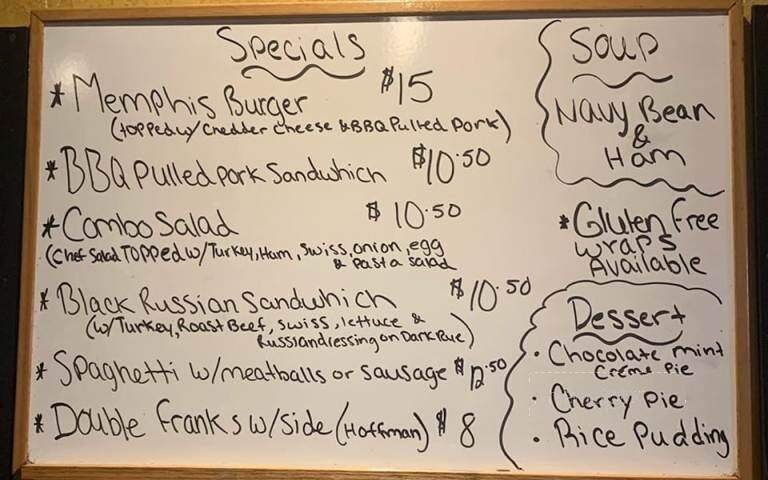 Specials
* Memphis Burger $15
(topped w/ Chedder Cheese & BBQ Pulled Pork)
* BBQ Pulled pork Sandwhich $10.50
* Combo Salad $10.50
(Chef Salad TOPPED w/ Turkey, Ham, Swiss, onion, egg
& Pasta Salad
* Black Russian Sandwhich $10.50
(w/ Turkey, Roast Beef, Swiss, lettuce &
Russian dressing on Dark Rye)
* Spaghetti w/ meatballs or Sausage $12.50
* Double Franks w/ Side (Hoffman) $8
Soup
Navy Bean
&
Ham
* Gluten Free
Wraps
Available
Dessert
• Chocolate mint
Créme Pie
• Cherry Pie
• Rice Pudding